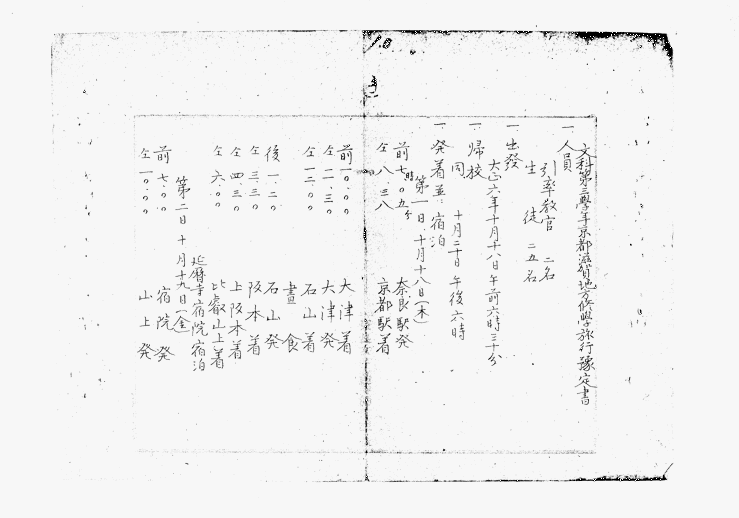 文科第三學年京都滋賀地方修學旅行豫定書
一、人員
引率教官 二名
生徒 二五名
一、出發
大正六年十月十八日午前六時三十分
一、帰校
同 十月二十日午後六時
一、発着並宿泊
第一日 十月十八日(木)
前七時〇五分 奈良駅発
仝八.三八 京都駅着
前一〇.〇〇 大津着
仝一一.三〇 大津発
仝一二.〇〇 石山着
晝食
後一.二〇 石山発
仝三.三〇 阪本着
仝四.三〇 上阪本着
仝六.〇〇 比叡山上着
延暦寺宿院宿泊
第二日 十月十九日(金)
前七.〇〇 宿院発
仝一〇.〇〇 山上発